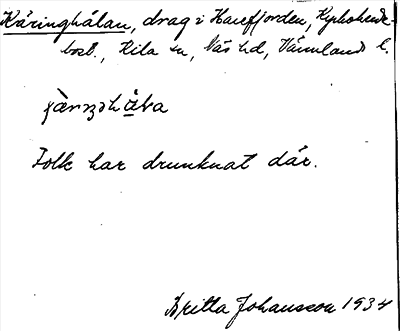 Käringhålan, drag i Harefjorden, Kyrkobol, Kila sn, Näs hd, Värmlands l.
Folk har drunknat där.
Britta Johansson 1934